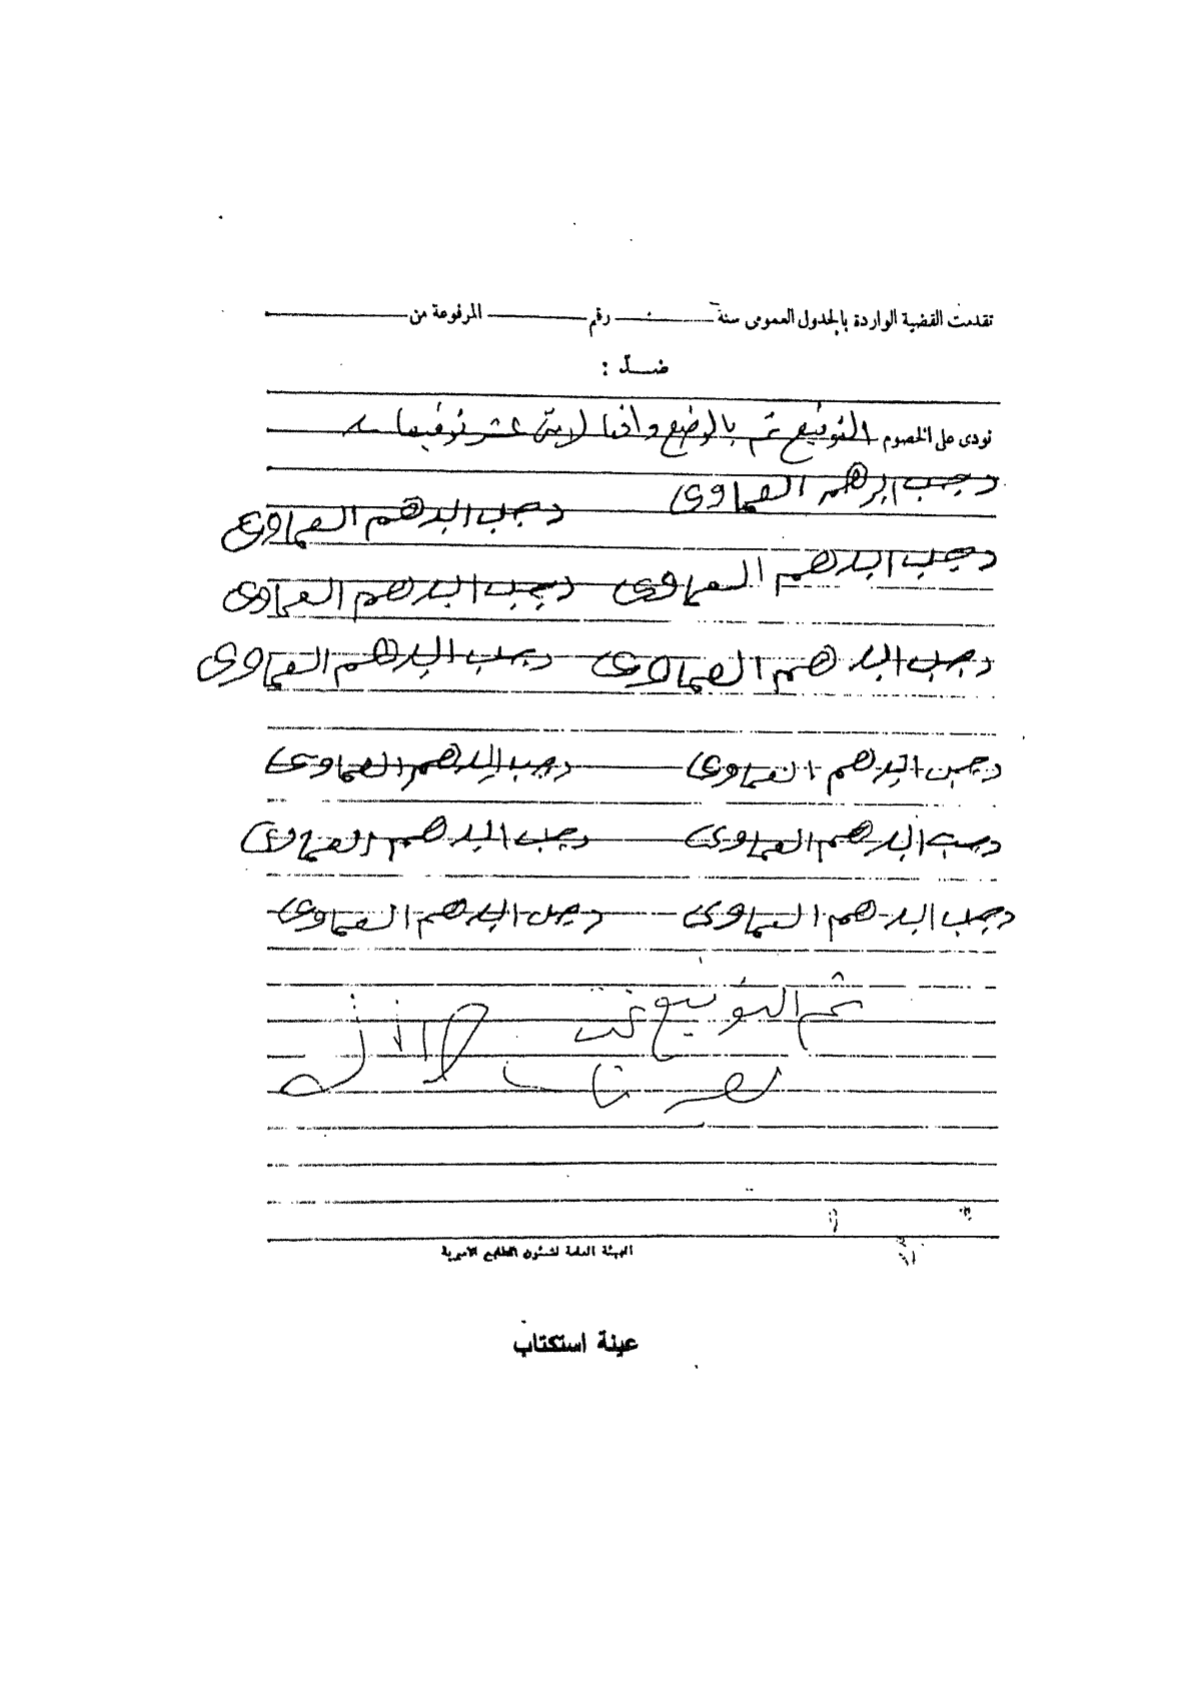 تقدمت القضية الواردة بالجدول العمومى سنة رقم المرفوعة من
ضد :
نودى على الخصوم التوقيع تم بالوضع واقفا لاثنى عشر توقيعا
رجب ابرهيم العماوى
رجب ابرهيم العماوى
رجب ابرهيم العماوى
رجب ابرهيم العماوى
رجب ابرهيم العماوى رجب ابرهيم العماوى
رجب ابرهيم العماوى رجب ابرهيم العماوى
رجب ابرهيم العماوى رجب ابرهيم العماوى
رجب ابرهيم العماوى رجب ابرهيم العماوى
تم التوقيع تحت
الهيئة العامة لشئون المطابع الأميرية
عينة استكتاب